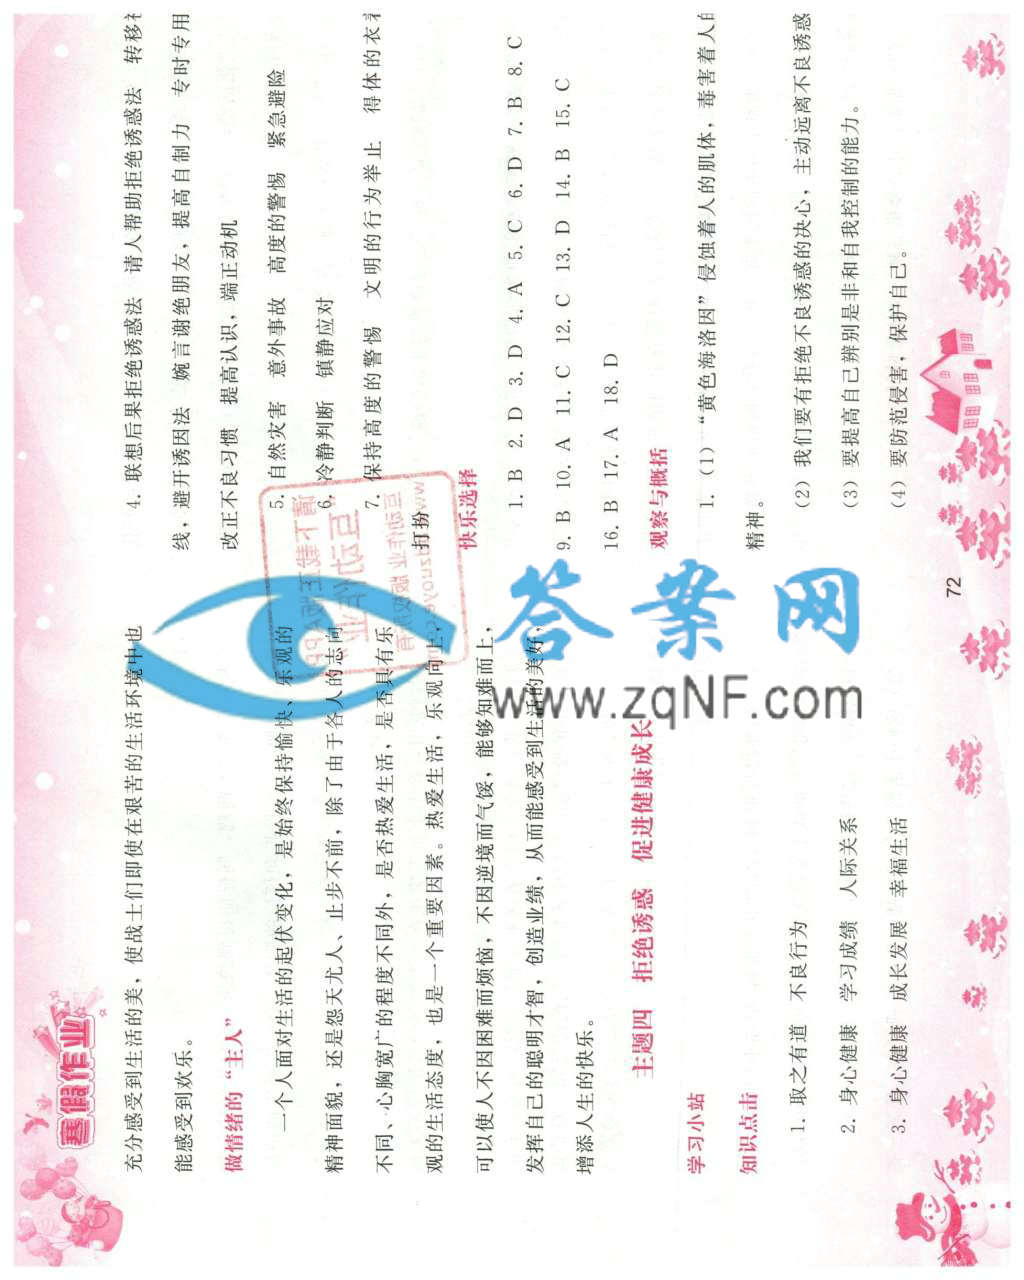 寒假作业
充分感受到生活的美，使战士们即使在艰苦的生活环境中也
能感受到欢乐。
做情绪的“主人”
一个人面对生活的起伏变化，是始终保持愉快、乐观的
精神面貌，还是怨天尤人、止步不前，除了由于各人的志向
不同、心胸宽广的程度不同外，是否热爱生活，是否具有乐
观的生活态度，也是一个重要因素。热爱生活，乐观向上，
可以使人不因困难而烦恼，不因逆境而气馁，能够知难而上，
发挥自己的聪明才智，创造业绩，从而能感受到生活的美好，
增添人生的快乐。
主题四 拒绝诱惑 促进健康成长
学习小站
知识点击
1. 取之有道 不良行为
2. 身心健康 学习成绩 人际关系
3. 身心健康 成长发展 幸福生活
4. 联想后果拒绝诱惑法 请人帮助拒绝诱惑法 转移
线，避开诱因法 婉言谢绝朋友，提高自制力 专时专用
改正不良习惯 提高认识，端正动机
5. 自然灾害 意外事故 高度的警惕 紧急避险
6. 冷静判断 镇静应对
7. 保持高度的警惕 文明的行为举止 得体的衣着
打扮
快乐选择
1. B 2. D 3. D 4. A 5. C 6. D 7. B 8. C
9. B 10. A 11. C 12. C 13. D 14. B 15. C
16. B 17. A 18. D
观察与概括
1.（1）“黄色海洛因”侵蚀着人的肌体，毒害着人的
精神。
（2）我们要有拒绝不良诱惑的决心，主动远离不良诱惑
（3）要提高自己辨别是非和自我控制的能力。
（4）要防范侵害，保护自己。
72
答案网
www.zqNF.com